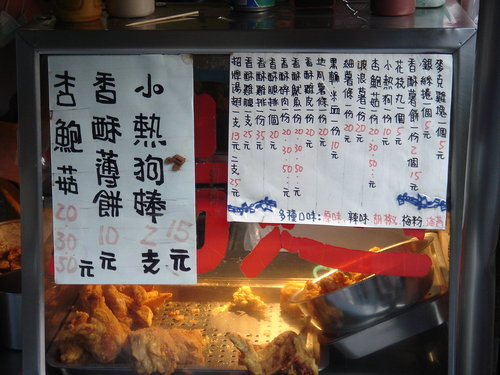 小熱狗棒 2支15元
香酥薄餅 10元
杏鮑菇 20.30.50元
麥克雞塊一個5元
銀絲捲一個5元
香酥薯餅一份2個15元
花枝丸一個5元
小熱狗一份10元
杏鮑菇一份20.30.50元
波浪薯條一份20元
細薯條一份20元
黑輪.米血一份10元
地瓜薯條一份20元
香酥一份20元
香酥魷魚一份20.30.50元
香酥碎肉一份20.30.50元
香酥一個20元
香酥雞排一份35元
香酥雞腿一支25元
招牌雞翅一支13元 二支25元
多種口味:原味 辣味 胡椒 梅粉 海苔